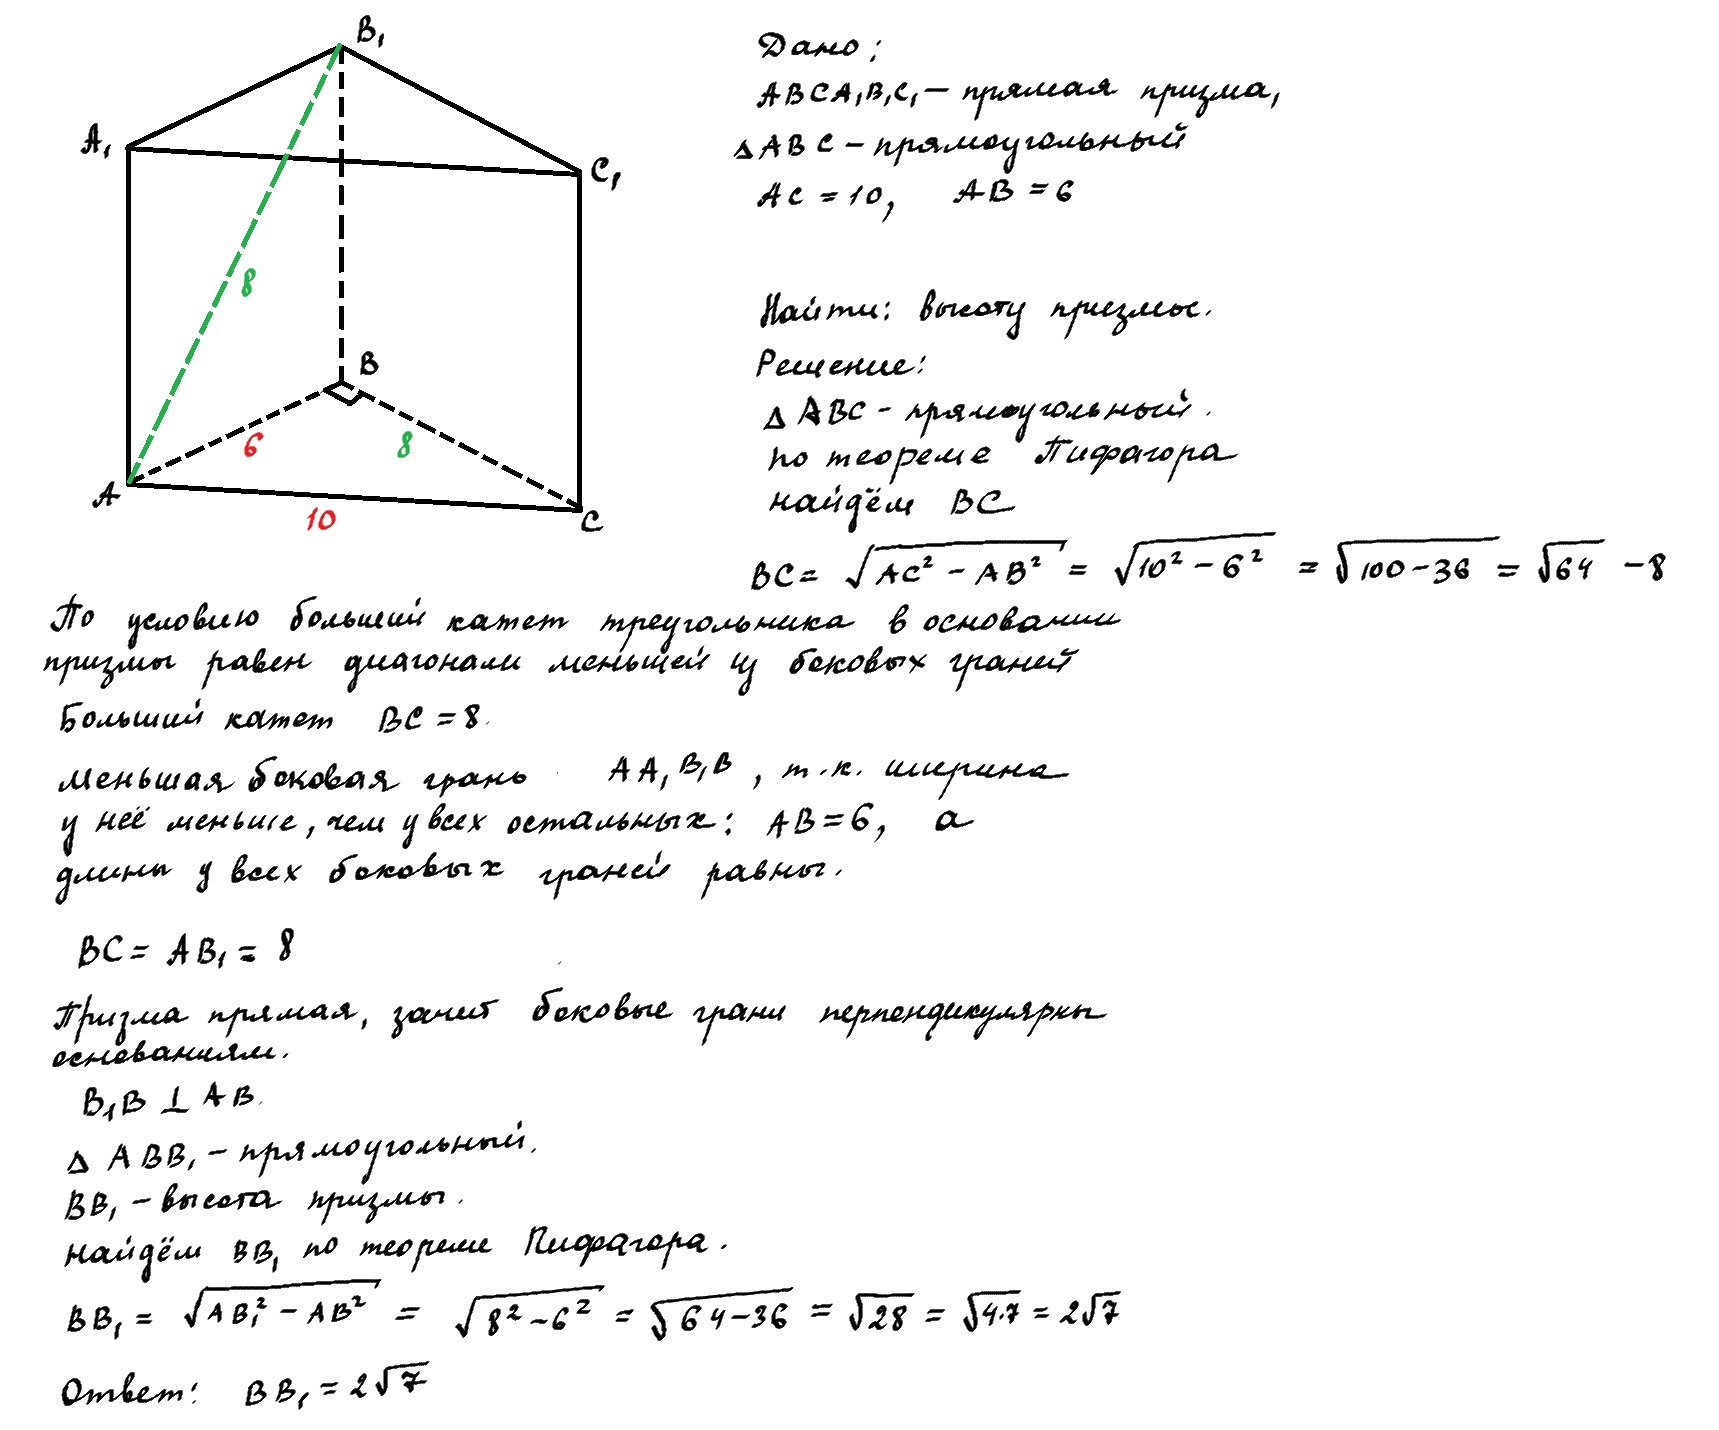 B₁
A₁
C₁
8
B
6
8
A
10
C
Дано:
ABCA₁B₁C₁ – прямая призма,
△ABC – прямоугольный
AC = 10, AB = 6
Найти: высоту призмы.
Решение:
△ ABC - прямоугольный.
по теореме Пифагора
найдём BC
BC = √(AC² - AB²) = √(10² - 6²) = √(100-36) = √64 - 8
По условию больший катет треугольника в основании
призмы равен диагонали меньшей из боковых граней
Больший катет BC = 8.
Меньшая боковая грань AA₁B₁B, т.к. ширина
у неё меньше, чем у всех остальных: AB = 6, а
длины у всех боковых граней равны.
BC = AB₁ = 8
Призма прямая, значит боковые грани перпендикулярны
основаниям.
B₁B ⊥ AB.
△ ABB₁ - прямоугольный.
BB₁ - высота призмы.
найдём BB₁ по теореме Пифагора.
BB₁ = √(AB₁² - AB²) = √(8² - 6²) = √(64-36) = √28 = √(4·7) = 2√7
Ответ: BB₁ = 2√7